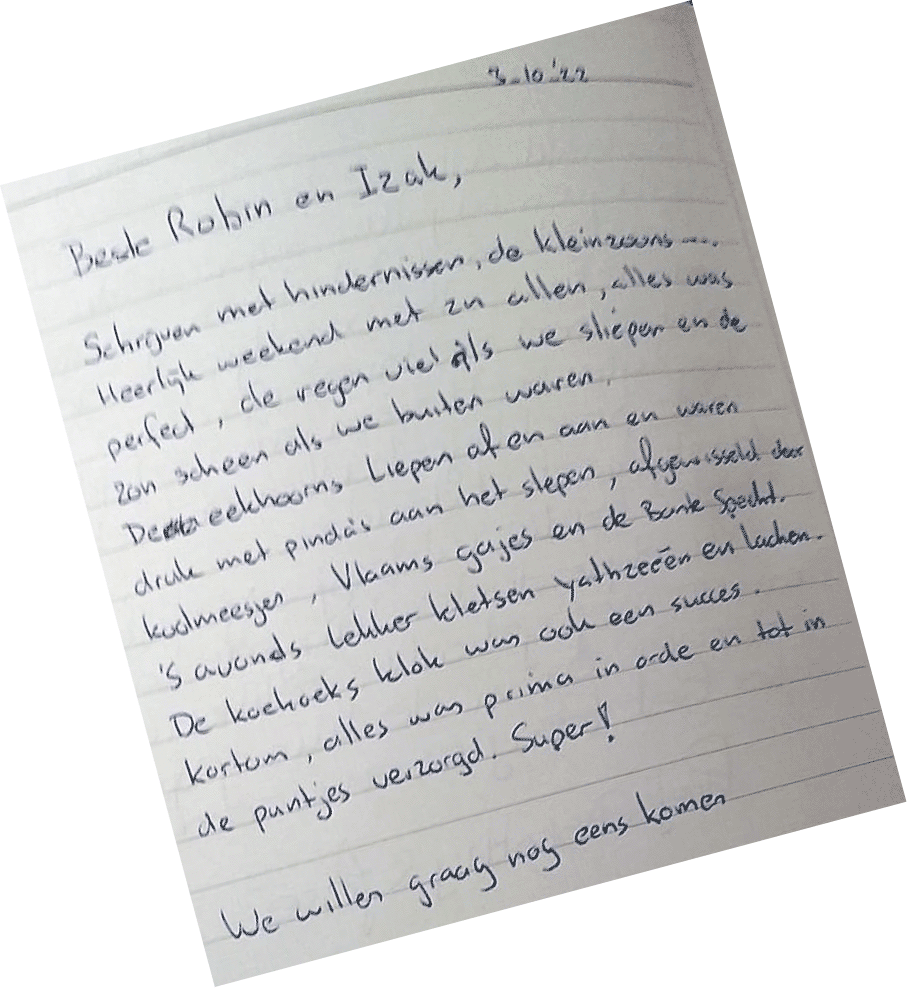 3-10-'22
Beste Robin en Izak,
Schrijven met hindernissen, de kleinzoons....
Heerlijk weekend met zn allen, alles was
perfect, de regen viel als we sliepen en de
zon scheen als we buiten waren.
De eekhoorns liepen af en aan en waren
druk met pinda's aan het slepen, afgewisseld door
koolmeesjes, Vlaams gajes en de Bonte Specht.
's avonds lekker kletsen yathzeeën en lachen.
De koekoeks klok was ook een succes.
kortom, alles was prima in orde en tot in
de puntjes verzorgd. Super!
We willen graag nog eens komen